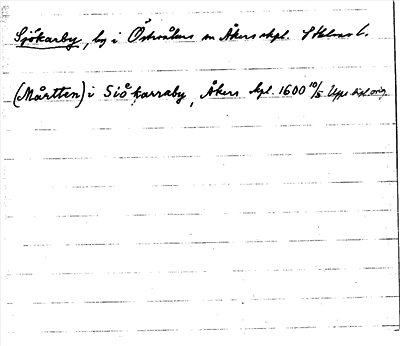 Sjökarby, by i Österåkers sn Åkers skpl. Sthlms l.
(Mårtten) i Siö karraby, Åkers skpl. 1600 10/5 Upps dipl. orig.